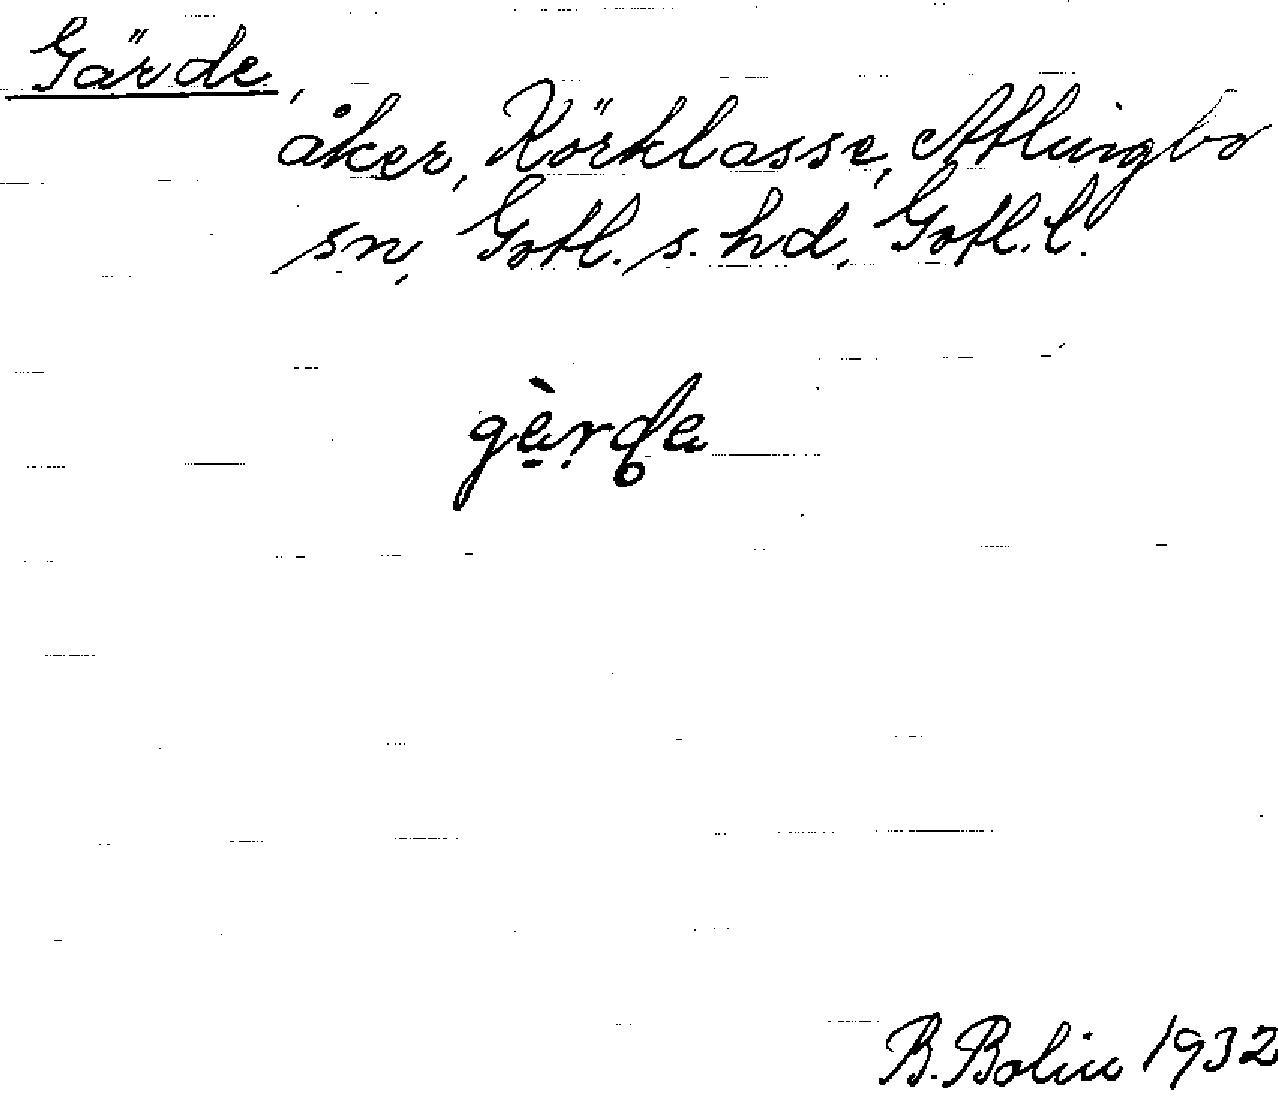 Gärde,
åker, Körklasse, Atlingbo
sn, Gotl. s. hd, Gotl. l.
gèrde
B. Bolin 1932